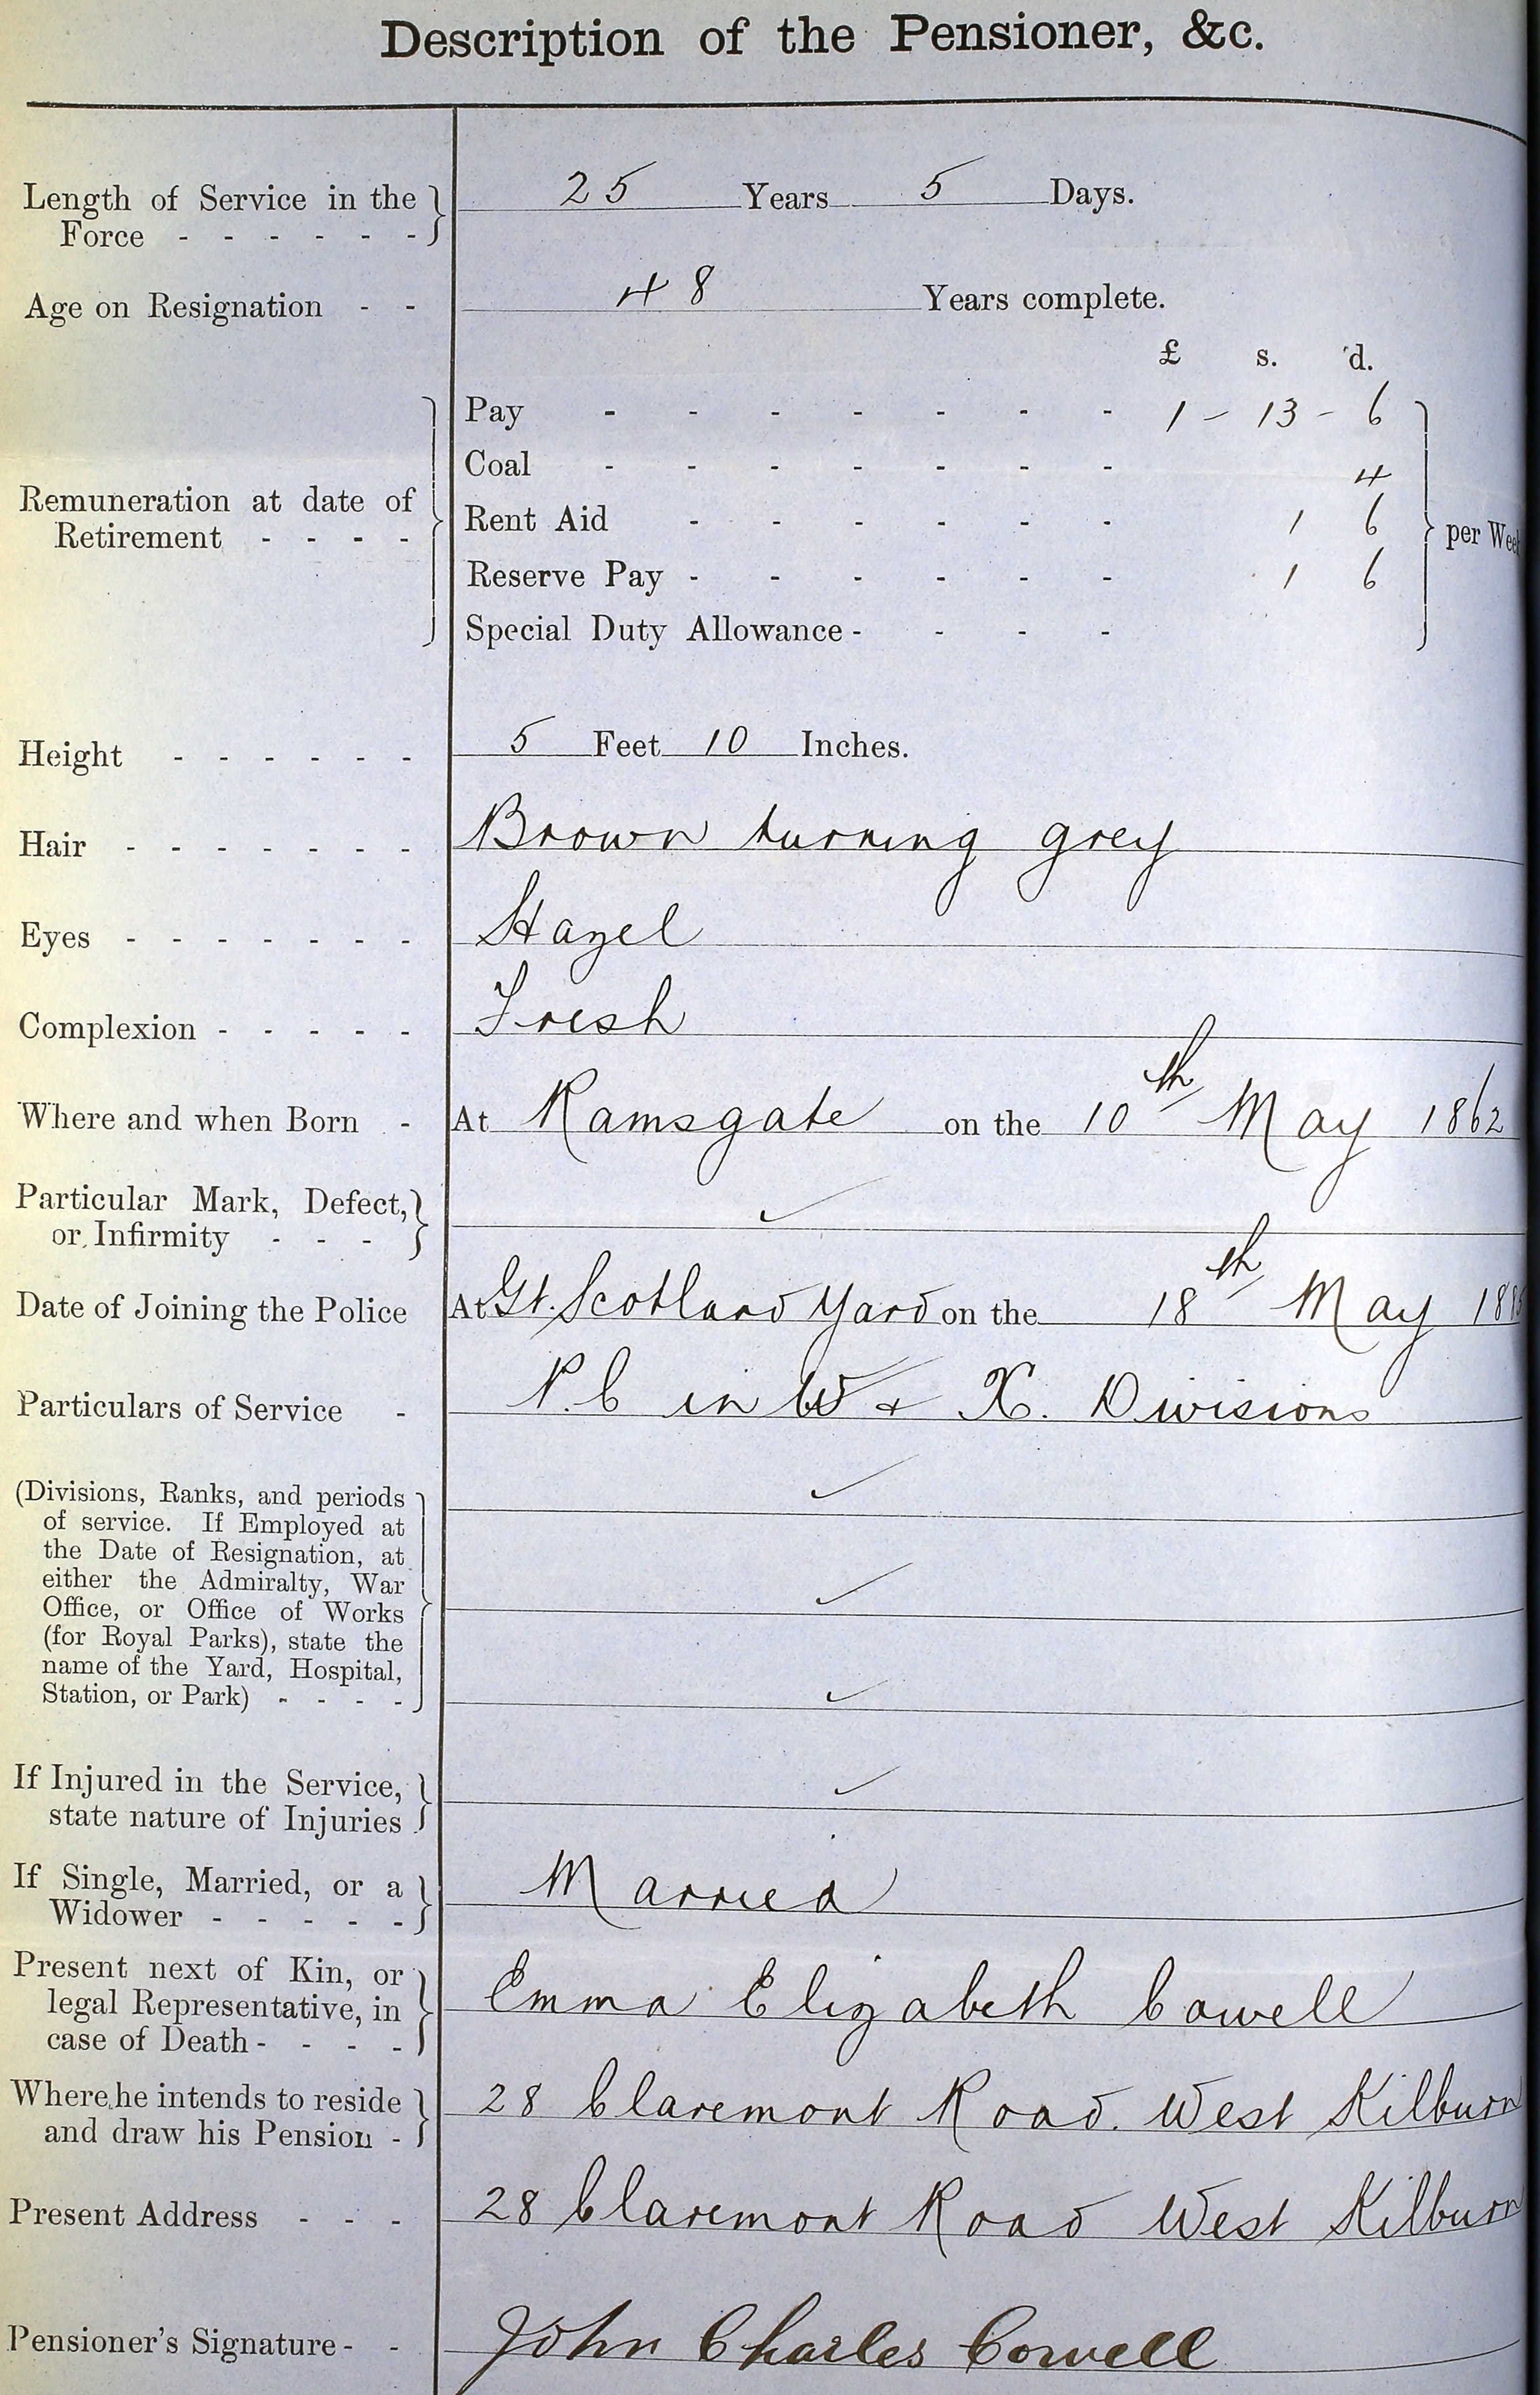 Description of the Pensioner, &c.
Length of Service in the Force - - - - - - 25 Years 5 Days.
Age on Resignation - - 48 Years complete.
£ s. d.
Remuneration at date of Retirement - - - -
Pay - - - - - - - 1 - 13 - 6
Coal - - - - - - - 4
Rent Aid - - - - - - 1 6
per Week
Reserve Pay - - - - - - 1 6
Special Duty Allowance - - - -
Height - - - - - - 5 Feet 10 Inches.
Hair - - - - - - - Brown turning grey
Eyes - - - - - - - Hazel
Complexion - - - - - Fresh
Where and when Born - At Ramsgate on the 10th May 1862
Particular Mark, Defect, or Infirmity - - - ✓
Date of Joining the Police At Gt. Scotland Yard on the 18th May
Particulars of Service - P.C in W & X. Divisions
(Divisions, Ranks, and periods ✓
of service. If Employed at
the Date of Resignation, at
either the Admiralty, War ✓
Office, or Office of Works
(for Royal Parks), state the
name of the Yard, Hospital,
Station, or Park) - - - - ✓
If Injured in the Service, state nature of Injuries ✓
If Single, Married, or a Widower - - - - - Married
Present next of Kin, or legal Representative, in case of Death - - - - Emma Elizabeth Cowell
Where he intends to reside and draw his Pension - 28 Claremont Road. West Kilburn
Present Address - - - 28 Claremont Road West Kilburn
Pensioner's Signature - - John Charles Cowell